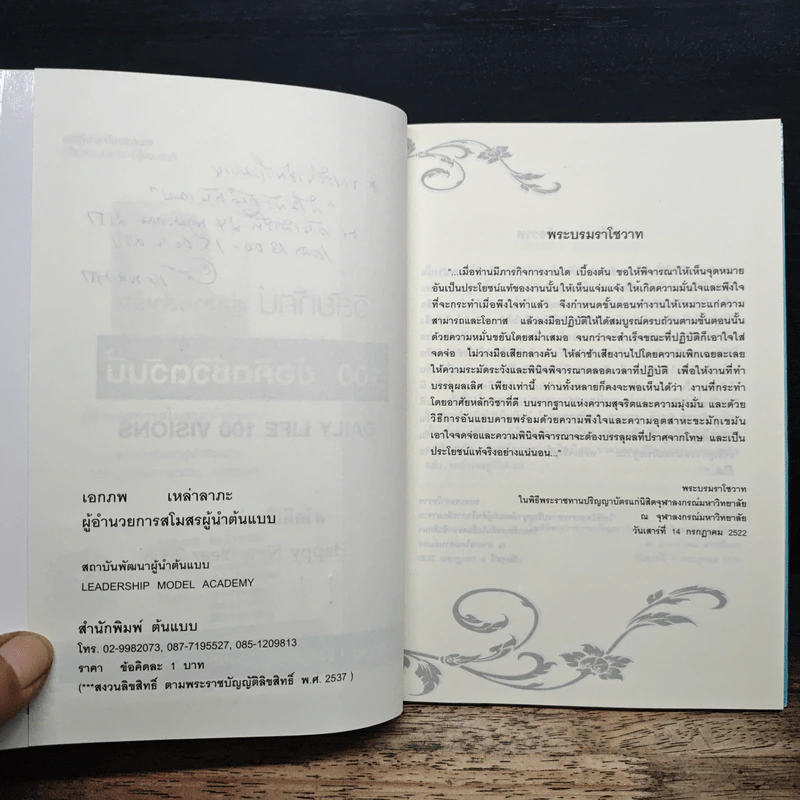 เอกภพ เหล่าลาภะ
ผู้อำนวยการสโมสรผู้นำต้นแบบ
สถาบันพัฒนาผู้นำต้นแบบ
LEADERSHIP MODEL ACADEMY
สำนักพิมพ์ ต้นแบบ
โทร. 02-9982073, 087-7195527, 085-1209813
ราคา ข้อคิดละ 1 บาท
(***สงวนลิขสิทธิ์ ตามพระราชบัญญัติลิขสิทธิ์ พ.ศ. 2537 )
พระบรมราโชวาท
"...เมื่อท่านมีภารกิจการงานใด เบื้องต้น ขอให้พิจารณาให้เห็นจุดหมาย
อันเป็นประโยชน์แท้ของงานนั้นให้เห็นแจ่มแจ้ง ให้เกิดความมั่นใจและพึงใจ
ที่จะกระทำเมื่อพึงใจทำแล้ว จึงกำหนดขั้นตอนทำงานให้เหมาะแก่ความ
สามารถและโอกาส แล้วลงมือปฏิบัติให้ได้สมบูรณ์ครบถ้วนตามขั้นตอนนั้น
ด้วยความหมั่นขยันโดยสม่ำเสมอ จนกว่าจะสำเร็จขณะที่ปฏิบัติก็เอาใจใส่
จดจ่อ ไม่วางมือเสียกลางคัน ให้ล่าช้าเสียงานไปโดยความเพิกเฉยละเลย
ให้ความระมัดระวังและพินิจพิจารณาตลอดเวลาที่ปฏิบัติ เพื่อให้งานที่ทำ
บรรลุผลเลิศ เพียงเท่านี้ ท่านทั้งหลายก็คงจะพอเห็นได้ว่า งานที่กระทำ
โดยอาศัยหลักวิชาที่ดี บนรากฐานแห่งความสุจริตและความมุ่งมั่น และด้วย
วิธีการอันแยบคายพร้อมด้วยความพึงใจและความอุตสาหะขะมักเขม้น
เอาใจจดจ่อและความพินิจพิจารณาจะต้องบรรลุผลที่ปราศจากโทษ และเป็น
ประโยชน์แท้จริงอย่างแน่นอน..."
พระบรมราโชวาท
ในพิธีพระราชทานปริญญาบัตรแก่นิสิตจุฬาลงกรณ์มหาวิทยาลัย
ณ จุฬาลงกรณ์มหาวิทยาลัย
วันเสาร์ที่ 14 กรกฎาคม 2522